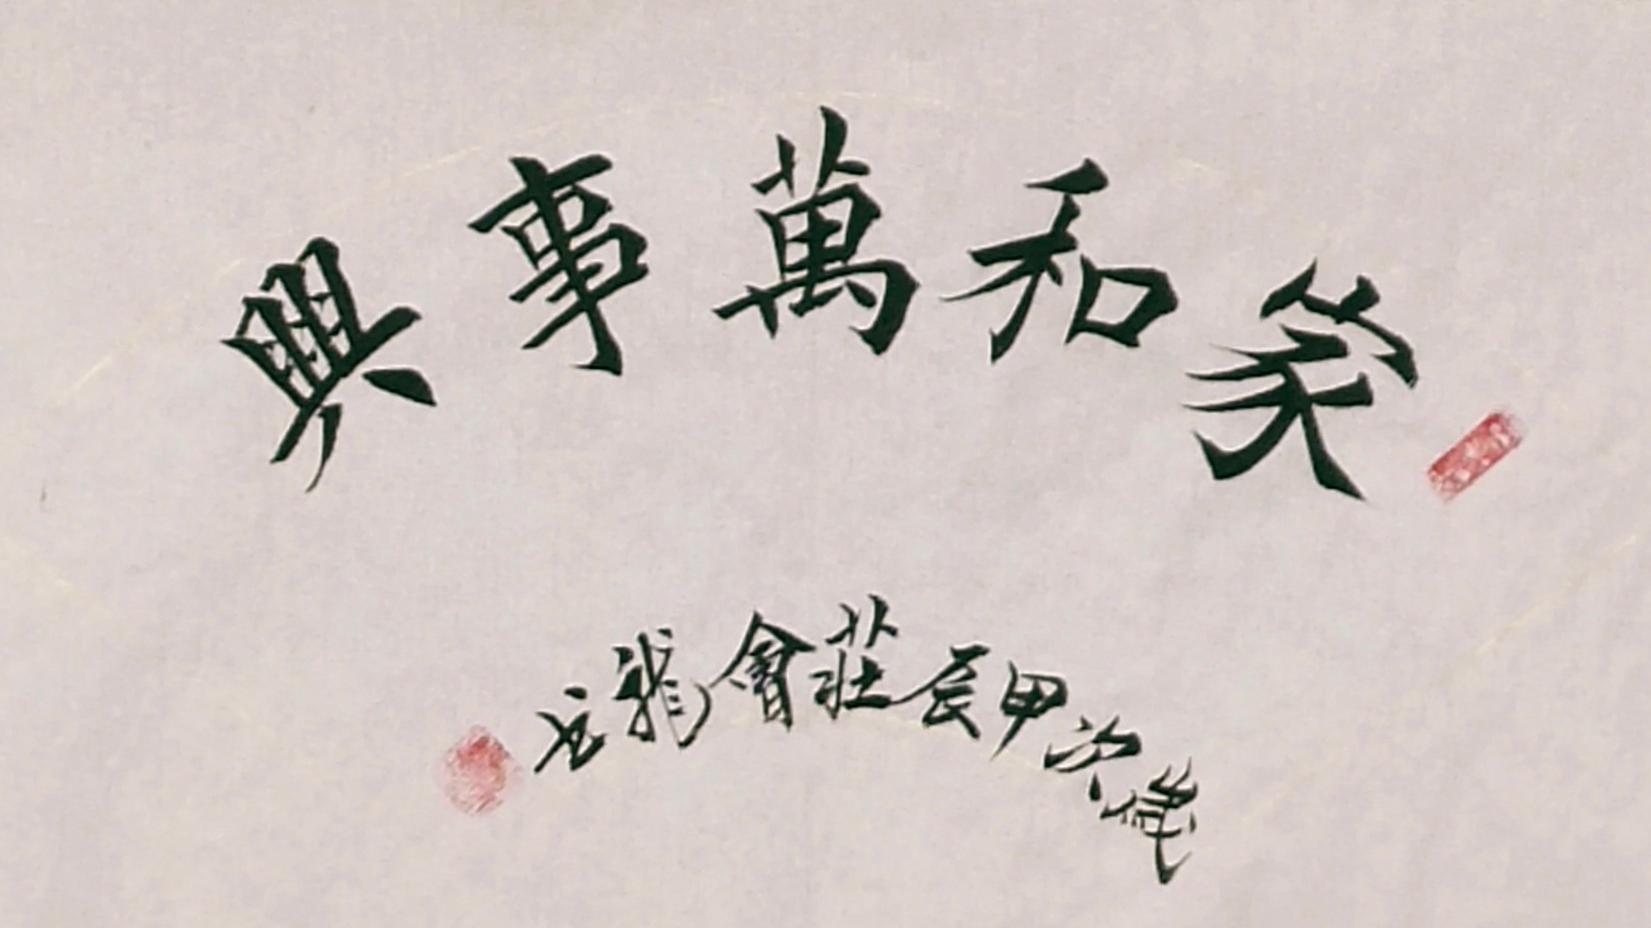 家和萬事興
歲次甲辰莊會龍書